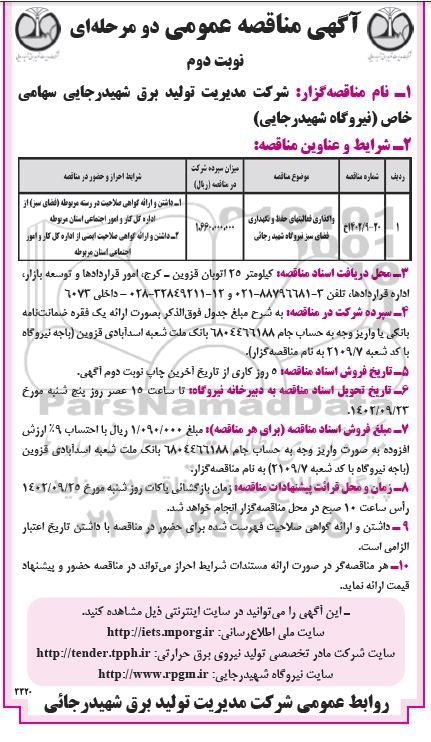 آگهی مناقصه عمومی دو مرحله‌ای
نوبت دوم
۱ـ نام مناقصه‌گزار: شرکت مدیریت تولید برق شهیدرجایی سهامی
خاص (نیروگاه شهیدرجایی)
۲ـ شرایط و عناوین مناقصه:
ردیف شماره مناقصه موضوع مناقصه میزان سپرده شرکت در مناقصه (ریال) شرایط احراز و حضور در مناقصه
۱ ۱۴۰۲/۹-۲۰خ واگذاری فعالیتهای حفظ و نگهداری فضای سبز نیروگاه شهید رجائی ۱,۶۶۰,۰۰۰,۰۰۰ ۱ـ داشتن و ارائه گواهی صلاحیت در رسته مربوطه (فضای سبز) از اداره کل کار و امور اجتماعی استان مربوطه
۲ـ داشتن و ارائه گواهی صلاحیت ایمنی از اداره کل کار و امور اجتماعی استان مربوطه
۳ـ محل دریافت اسناد مناقصه: کیلومتر ۲۵ اتوبان قزوین ـ کرج، امور قراردادها و توسعه بازار،
اداره قراردادها، تلفن ۳-۸۸۷۹۶۶۸۱-۰۲۱ و ۱۲-۳۲۸۴۹۲۱۱-۰۲۸ – داخلی ۶۰۷۳
۴ـ سپرده شرکت در مناقصه: به شرح مبلغ جدول فوق‌الذکر بصورت ارائه یک فقره ضمانت‌نامه
بانکی یا واریز وجه به حساب جام ۶۸۰۴۴۶۶۱۸۸ بانک ملت شعبه اسدآبادی قزوین (باجه نیروگاه
با کد شعبه ۲۱۰۹/۷ به نام مناقصه‌گزار).
۵ـ تاریخ فروش اسناد مناقصه: ۵ روز کاری از تاریخ آخرین چاپ نوبت دوم آگهی.
۶ـ تاریخ تحویل اسناد مناقصه به دبیرخانه نیروگاه: تا ساعت ۱۵ عصر روز پنج شنبه مورخ
۱۴۰۲/۰۹/۲۳.
۷ـ مبلغ فروش اسناد مناقصه (برای هر مناقصه): مبلغ ۱/۰۹۰/۰۰۰ ریال با احتساب ۹٪ ارزش
افزوده به صورت واریز وجه به حساب جام ۶۸۰۴۴۶۶۱۸۸ بانک ملت شعبه اسدآبادی قزوین
(باجه نیروگاه با کد شعبه ۲۱۰۹/۷) به نام مناقصه‌گزار.
۸ـ زمان و محل قرائت پیشنهادات مناقصه: زمان بازگشائی پاکات روز شنبه مورخ ۱۴۰۲/۰۹/۲۵
رأس ساعت ۱۰ صبح در محل مناقصه‌گزار انجام خواهد شد.
۹ـ داشتن و ارائه گواهی صلاحیت فهرست شده برای حضور در مناقصه با داشتن تاریخ اعتبار
الزامی است.
۱۰ـ هر مناقصه‌گر در صورت ارائه مستندات شرایط احراز می‌تواند در مناقصه حضور و پیشنهاد
قیمت ارائه نماید.
ـ این آگهی را می‌توانید در سایت اینترنتی ذیل مشاهده کنید.
سایت ملی اطلاع‌رسانی: http://iets.mporg.ir
سایت شرکت مادر تخصصی تولید نیروی برق حرارتی: http://tender.tpph.ir
سایت نیروگاه شهیدرجایی: http://www.rpgm.ir
۲۲۲۰
روابط عمومی شرکت مدیریت تولید برق شهیدرجائی
ParsNamadData